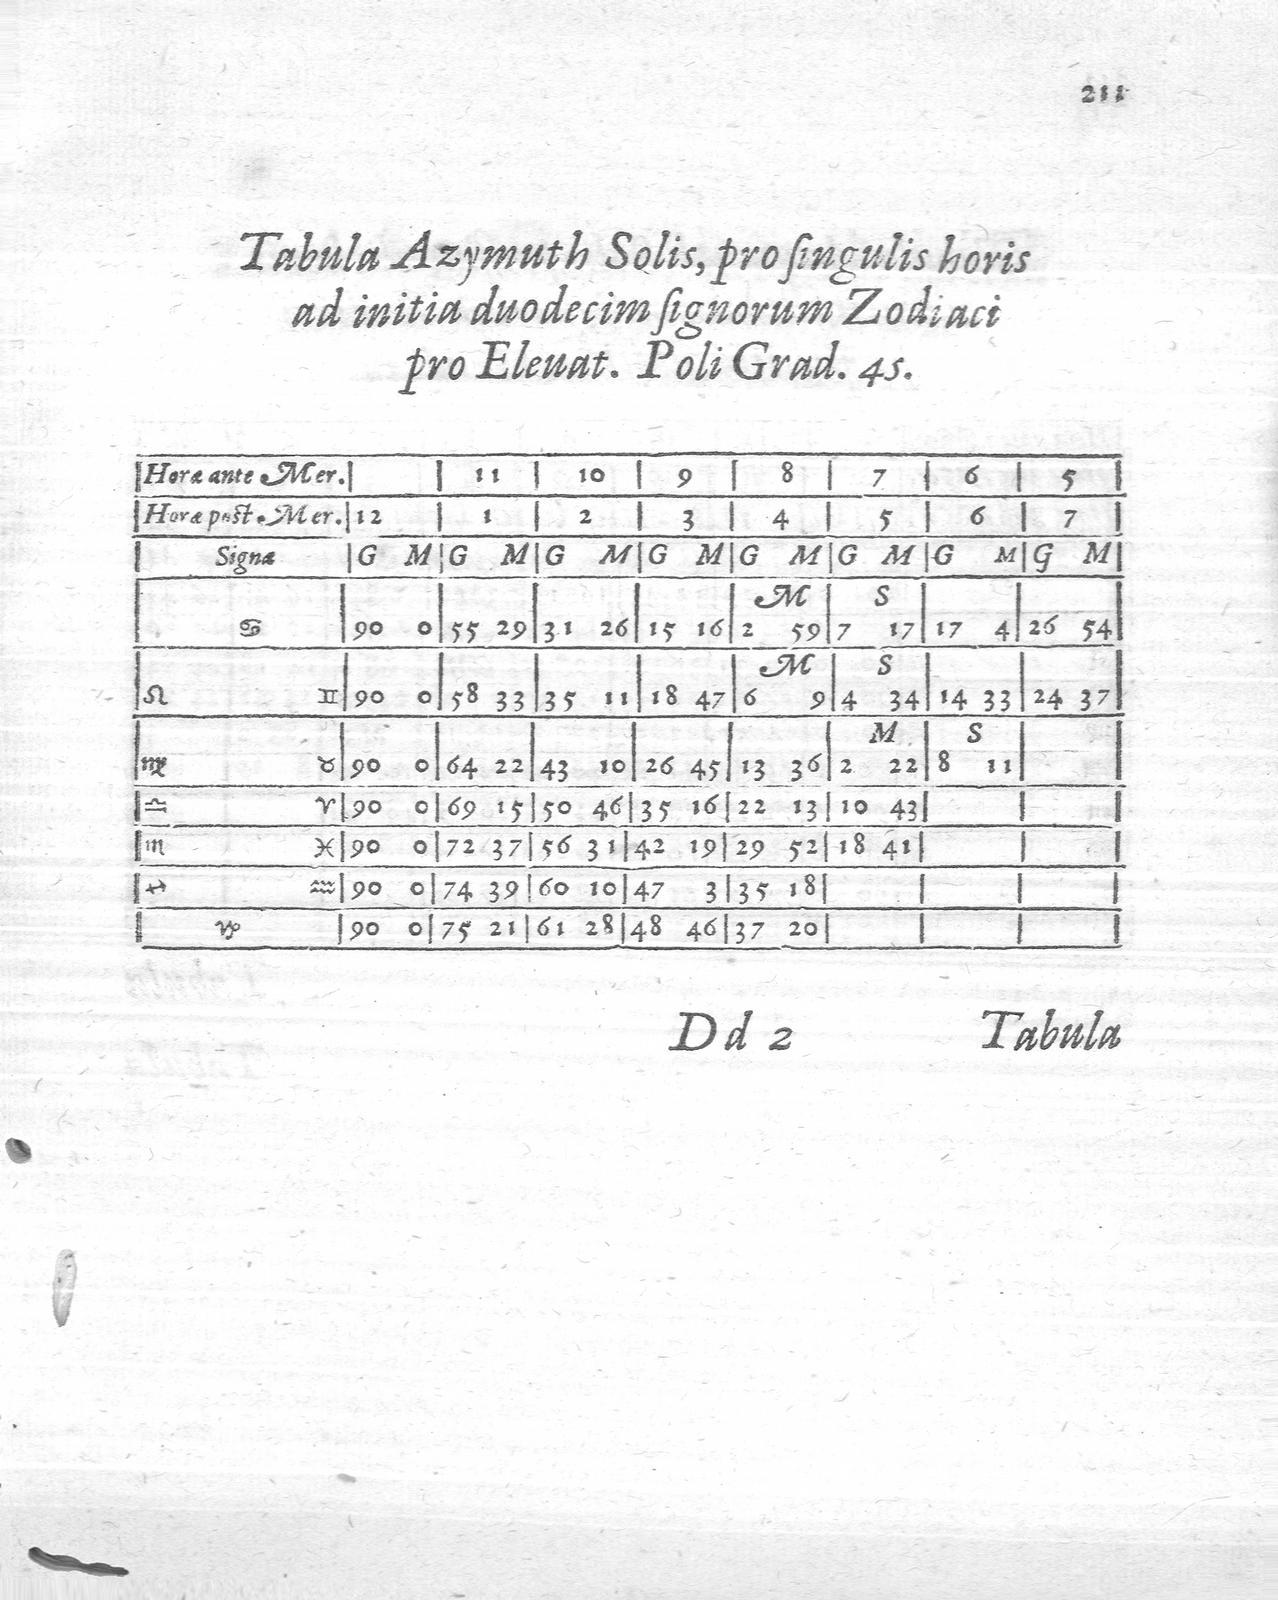 211
Tabula Azymuth Solis, pro ſingulis horis
ad initia duodecim ſignorum Zodiaci
pro Eleuat. Poli Grad. 45.
Horæ ante Mer. 11 10 9 8 7 6 5
Horæ post Mer. 12 1 2 3 4 5 6 7
Signa G M G M G M G M G M G M G M G M
M S
♋ 90 0 55 29 31 26 15 16 2 59 7 17 17 4 26 54
M S
♌ ♊ 90 0 58 33 35 11 18 47 6 9 4 34 14 33 24 37
M S
♍ ♉ 90 0 64 22 43 10 26 45 13 36 2 22 8 11
♎ ♈ 90 0 69 15 50 46 35 16 22 13 10 43
♏ ♓ 90 0 72 37 56 31 42 19 29 52 18 41
♐ ♒ 90 0 74 39 60 10 47 3 35 18
♑ 90 0 75 21 61 28 48 46 37 20
Dd 2 Tabula